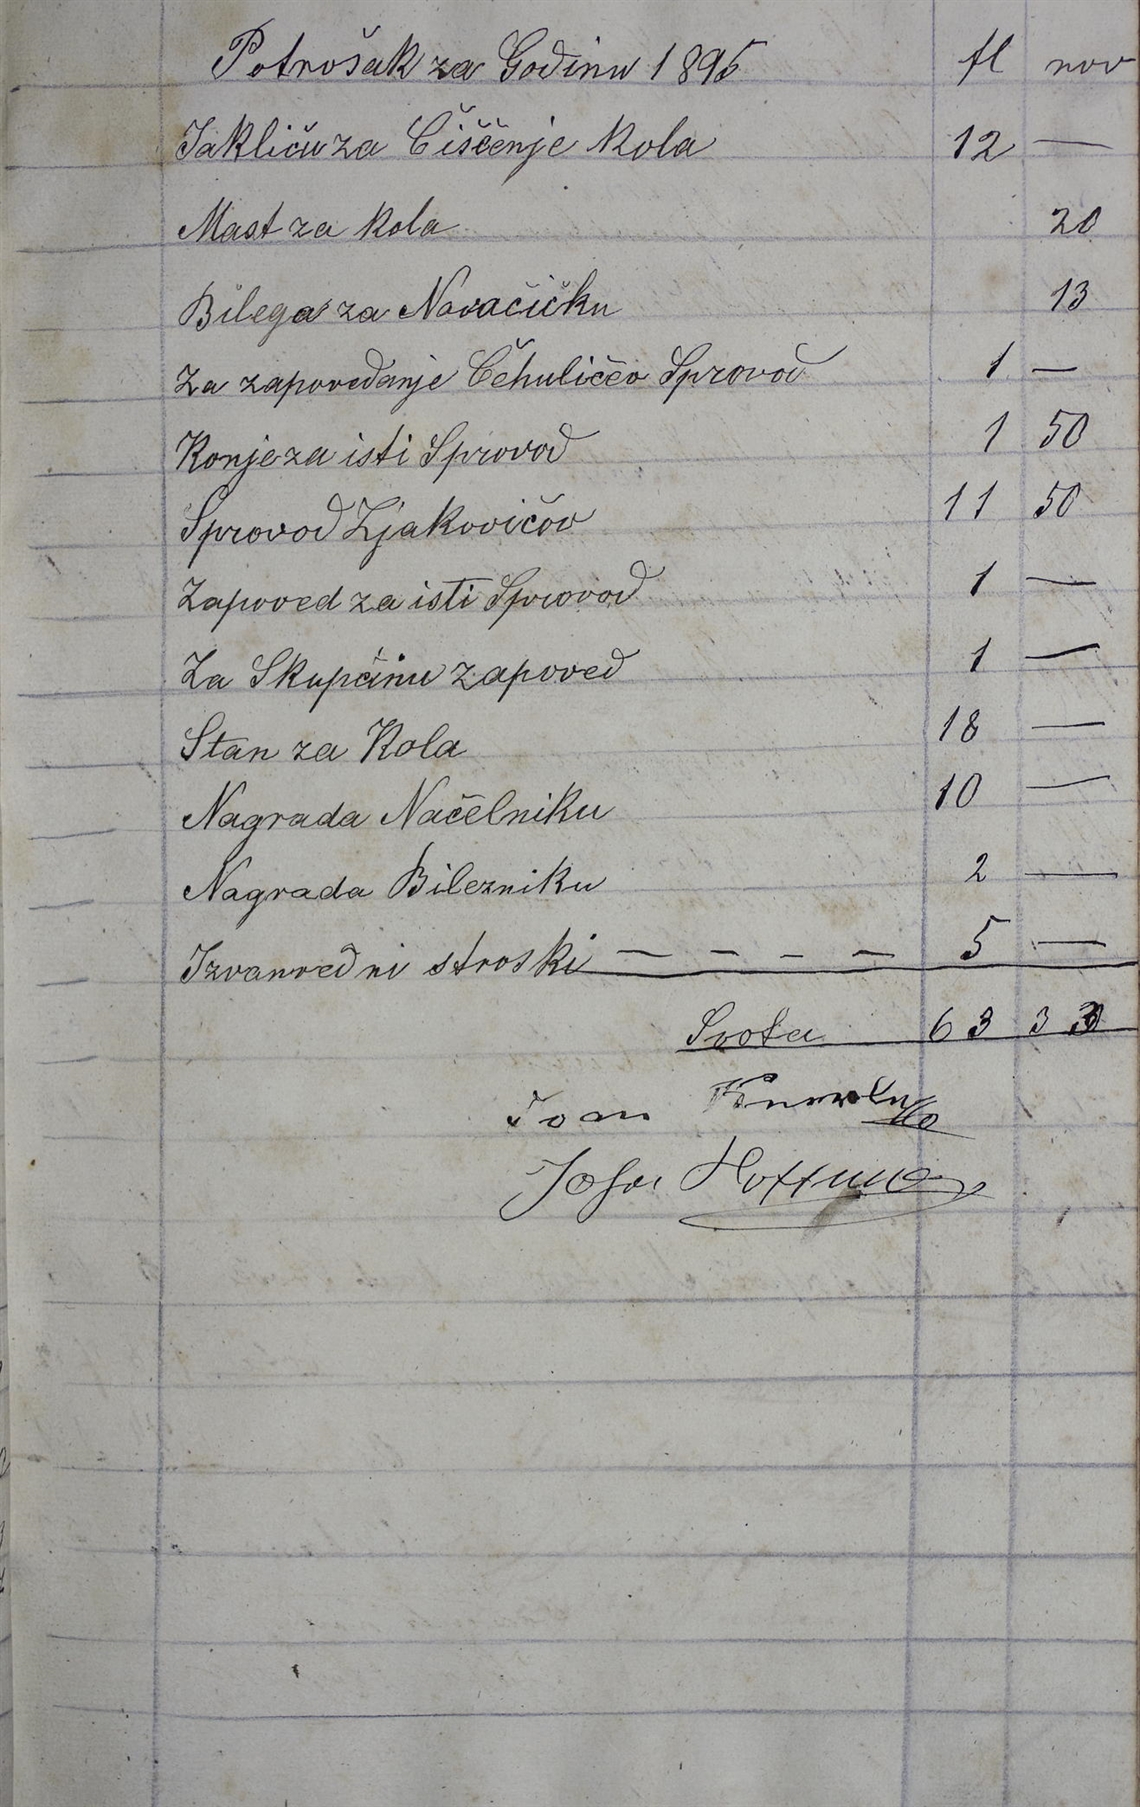 Potrošak za Godinu 1895 fl nov
Jakliču za Čiščenje Kola 12 —
Mast za Kola 20
Bilega za Novačičku 13
Za zapovedanje Čehuličev Sprovod 1 —
Konje za isti Sprovod 1 50
Sprovod Ljakovičov 11 50
Zapoved za isti Sprovod 1 —
Za Skupčinu zapoved 1 —
Stan za Kola 18 —
Nagrada Načelniku 10 —
Nagrada Bilezniku 2 —
Izvanredni stroski — — — — 5 —
Svota 63 33
Ivan